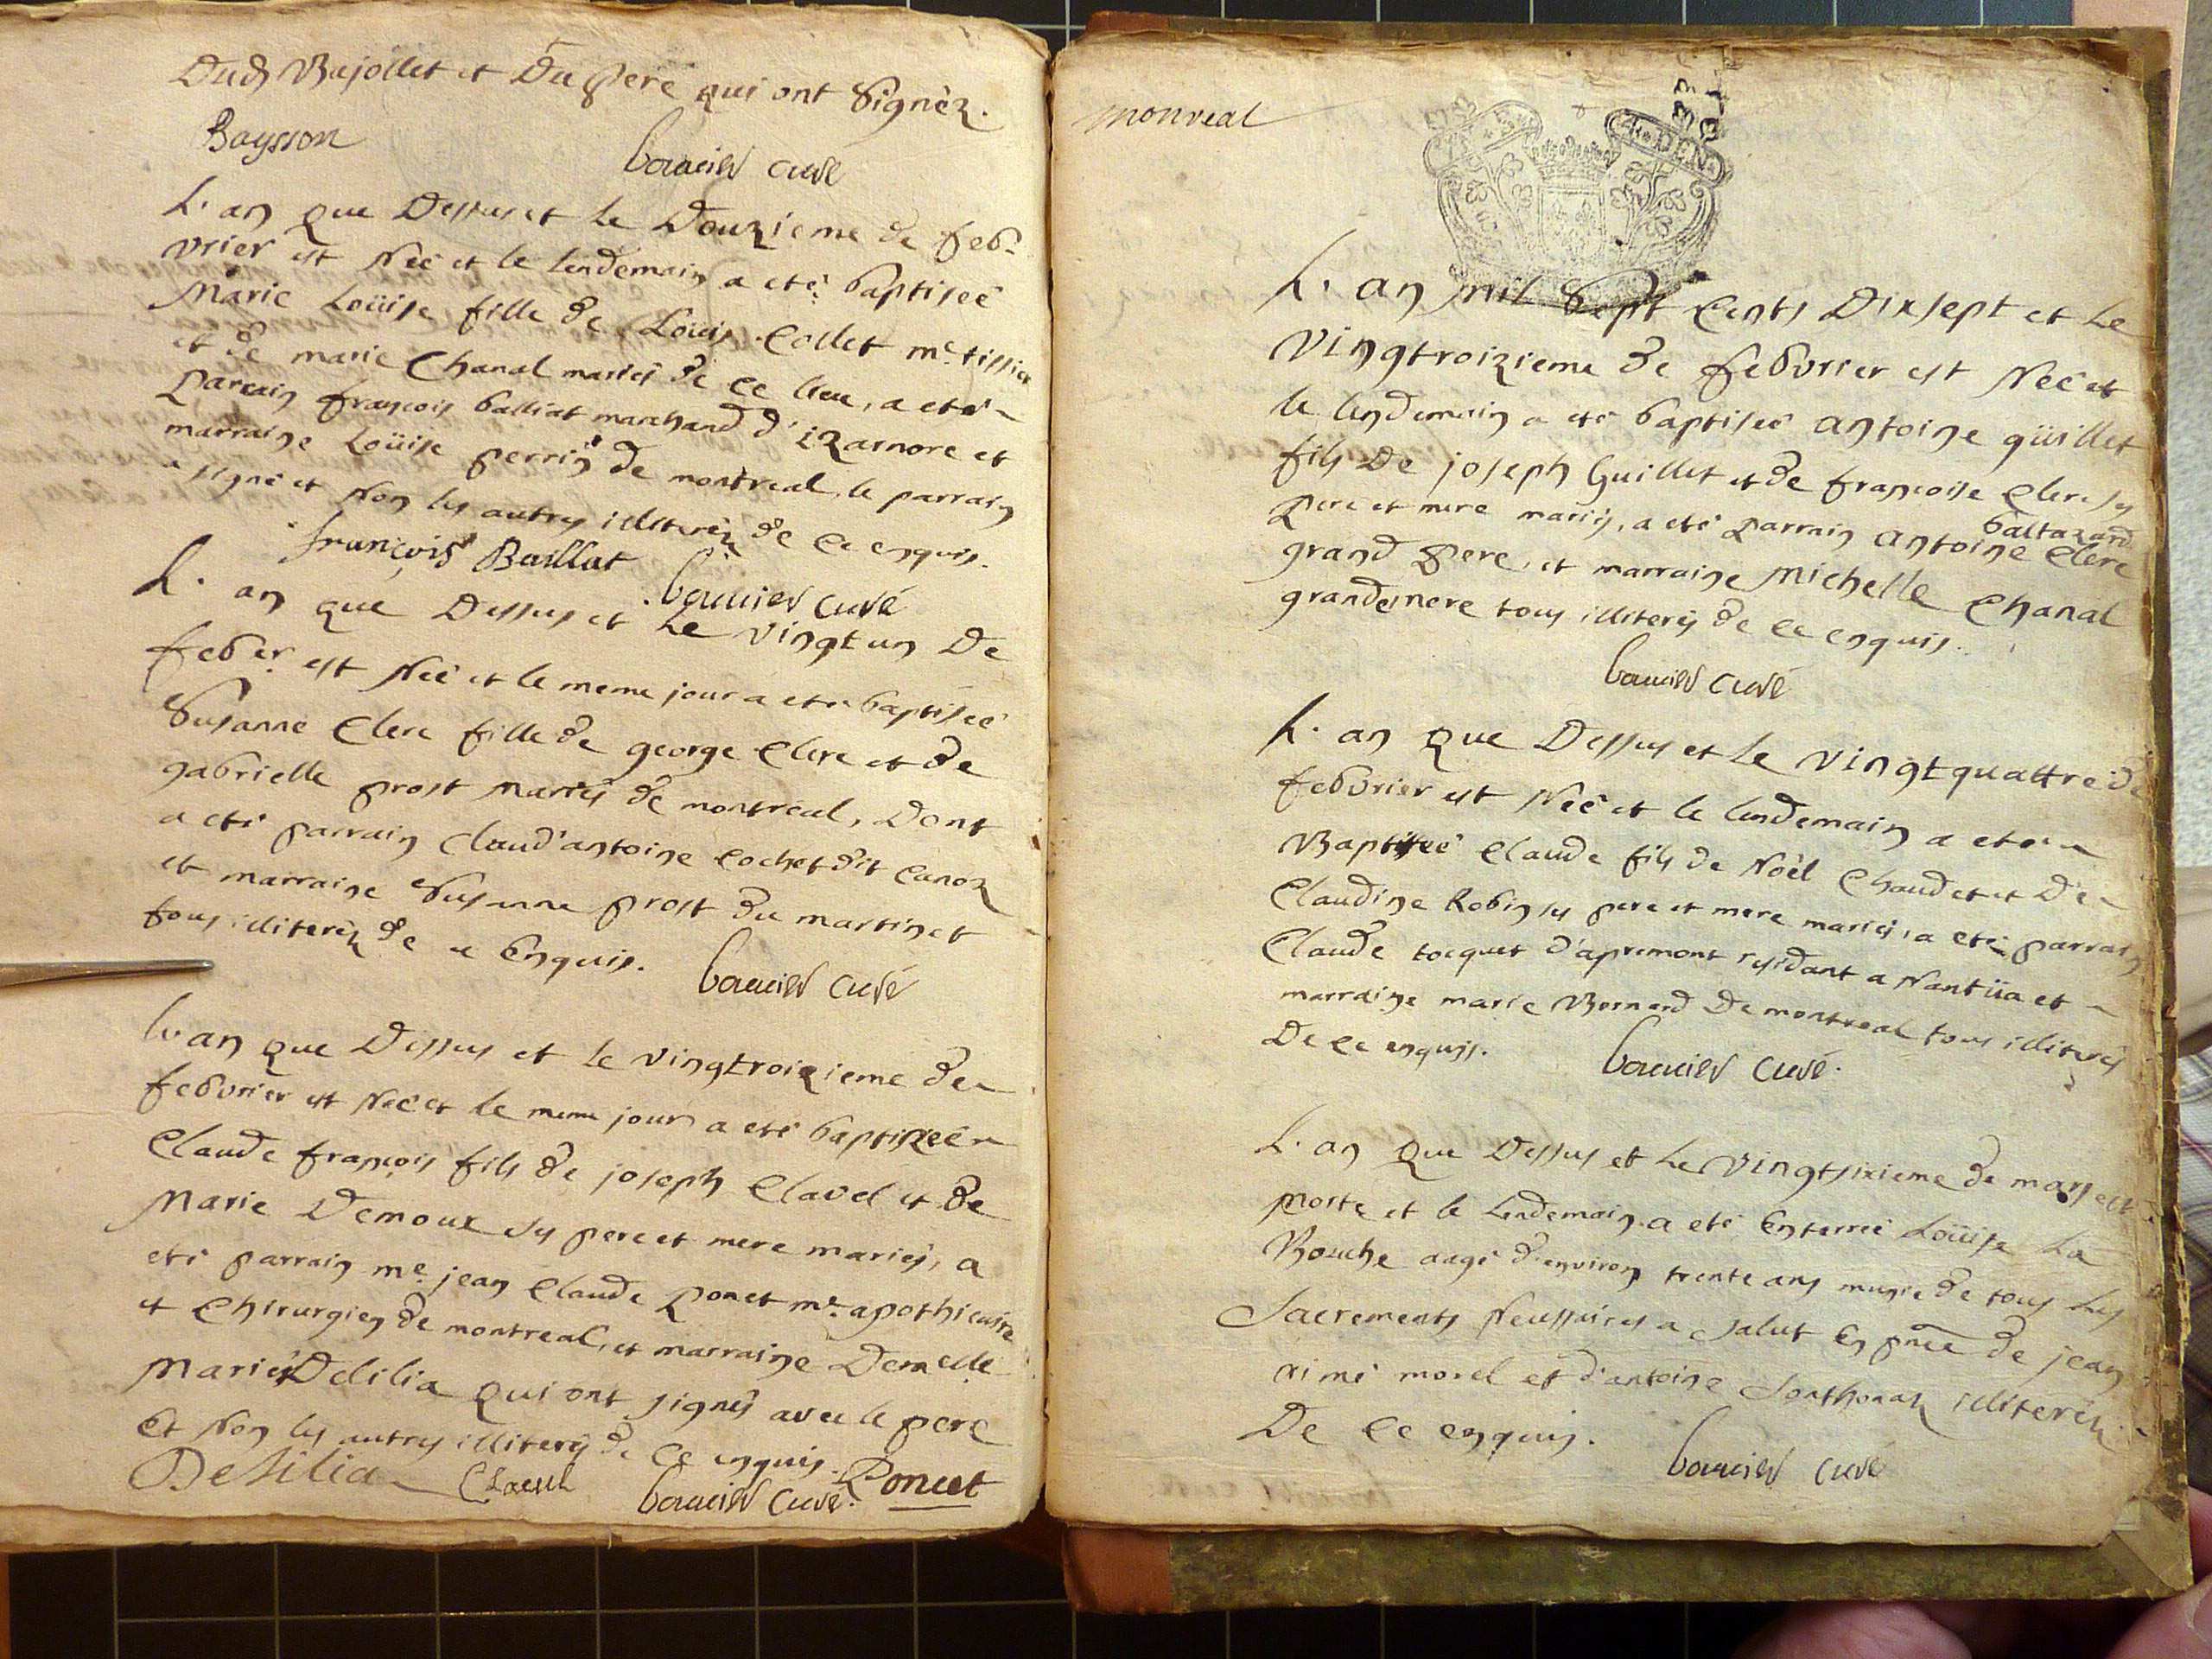 Dud Bajollet et Du Pere qui ont Signéz.
Baysson
bouvier curé
L'an que Dessus et le Douzieme de feb-
vrier est Neé et le lendemain a eté baptiseé
Marie Loüise fille de Loüis Collet me. tissier
et de marie Chanal mariés de ce lieu, a eté
Parrain françois balliat marchand d'izarnore et
marraine Loüise perrin de montreal, le parrain
a signé et Non les autres illiteréz de ce enquis.
françois Baillat
bouvier curé
L'an que Dessus et Le vingt un De
feber. est Neé et le meme jour a eté baptiseé
Susanne Clerc fille de george Clerc et de
gabrielle prost mariés de montreal, Dont
a eté parrain Claud'antoine Cochet dit Canoz
et marraine Susanne prost du martinet
tous illiteréz de ce Enquis.
bouvier curé
L'an que Dessus et le vingtroizieme de
febvrier est Neé et le meme jour a eté baptizeé
Claude françois fils de joseph Clavel et de
Marie Demoux ses pere et mere mariés, a
eté parrain me. jean Claude Poncet me. apothicaire
et Chirurgien de montreal, et marraine Demelle
Marie Delilia qui ont signés avec le pere
Et Non les autres illiterés de ce enquis.
Delilia
Clavel
bouvier curé.
Poncet
monreal
L'an mil Sept Cents Dixsept et Le
Vingtroizieme de febvrier est Neé et
le lendemain a eté baptiseé antoine güillet
fils De joseph Guillet et de françoise Clerc ses
Pere et mere mariés, a eté parrain antoine baltazard Clerc
grand pere, et marraine Michelle Chanal
grandemere tous illiterés de ce enquis.
bouvier curé
L'an que Dessus et Le vingtquattre de
febvrier est Neé et le lendemain a eté
Baptiseé Claude fils de Noël Chaudet et De
Claudine Robin ses pere et mere mariés, a eté parrain
Claude tocquet d'apremont residant a Nantüa et
marraine marie Bernard De montreal tous illiterés
De ce enquis.
bouvier curé.
L'an que Dessus et Le Vingtsixieme de mars est
morte et le lendemain a eté Enterreé Loüise La
Bouche aagé d'environ trente ans munie de tous les
Sacrements Necessaires a salut En pnce de jean
aimé morel et d'antoine Sonthonax illiteréz
De ce enquis.
bouvier curé